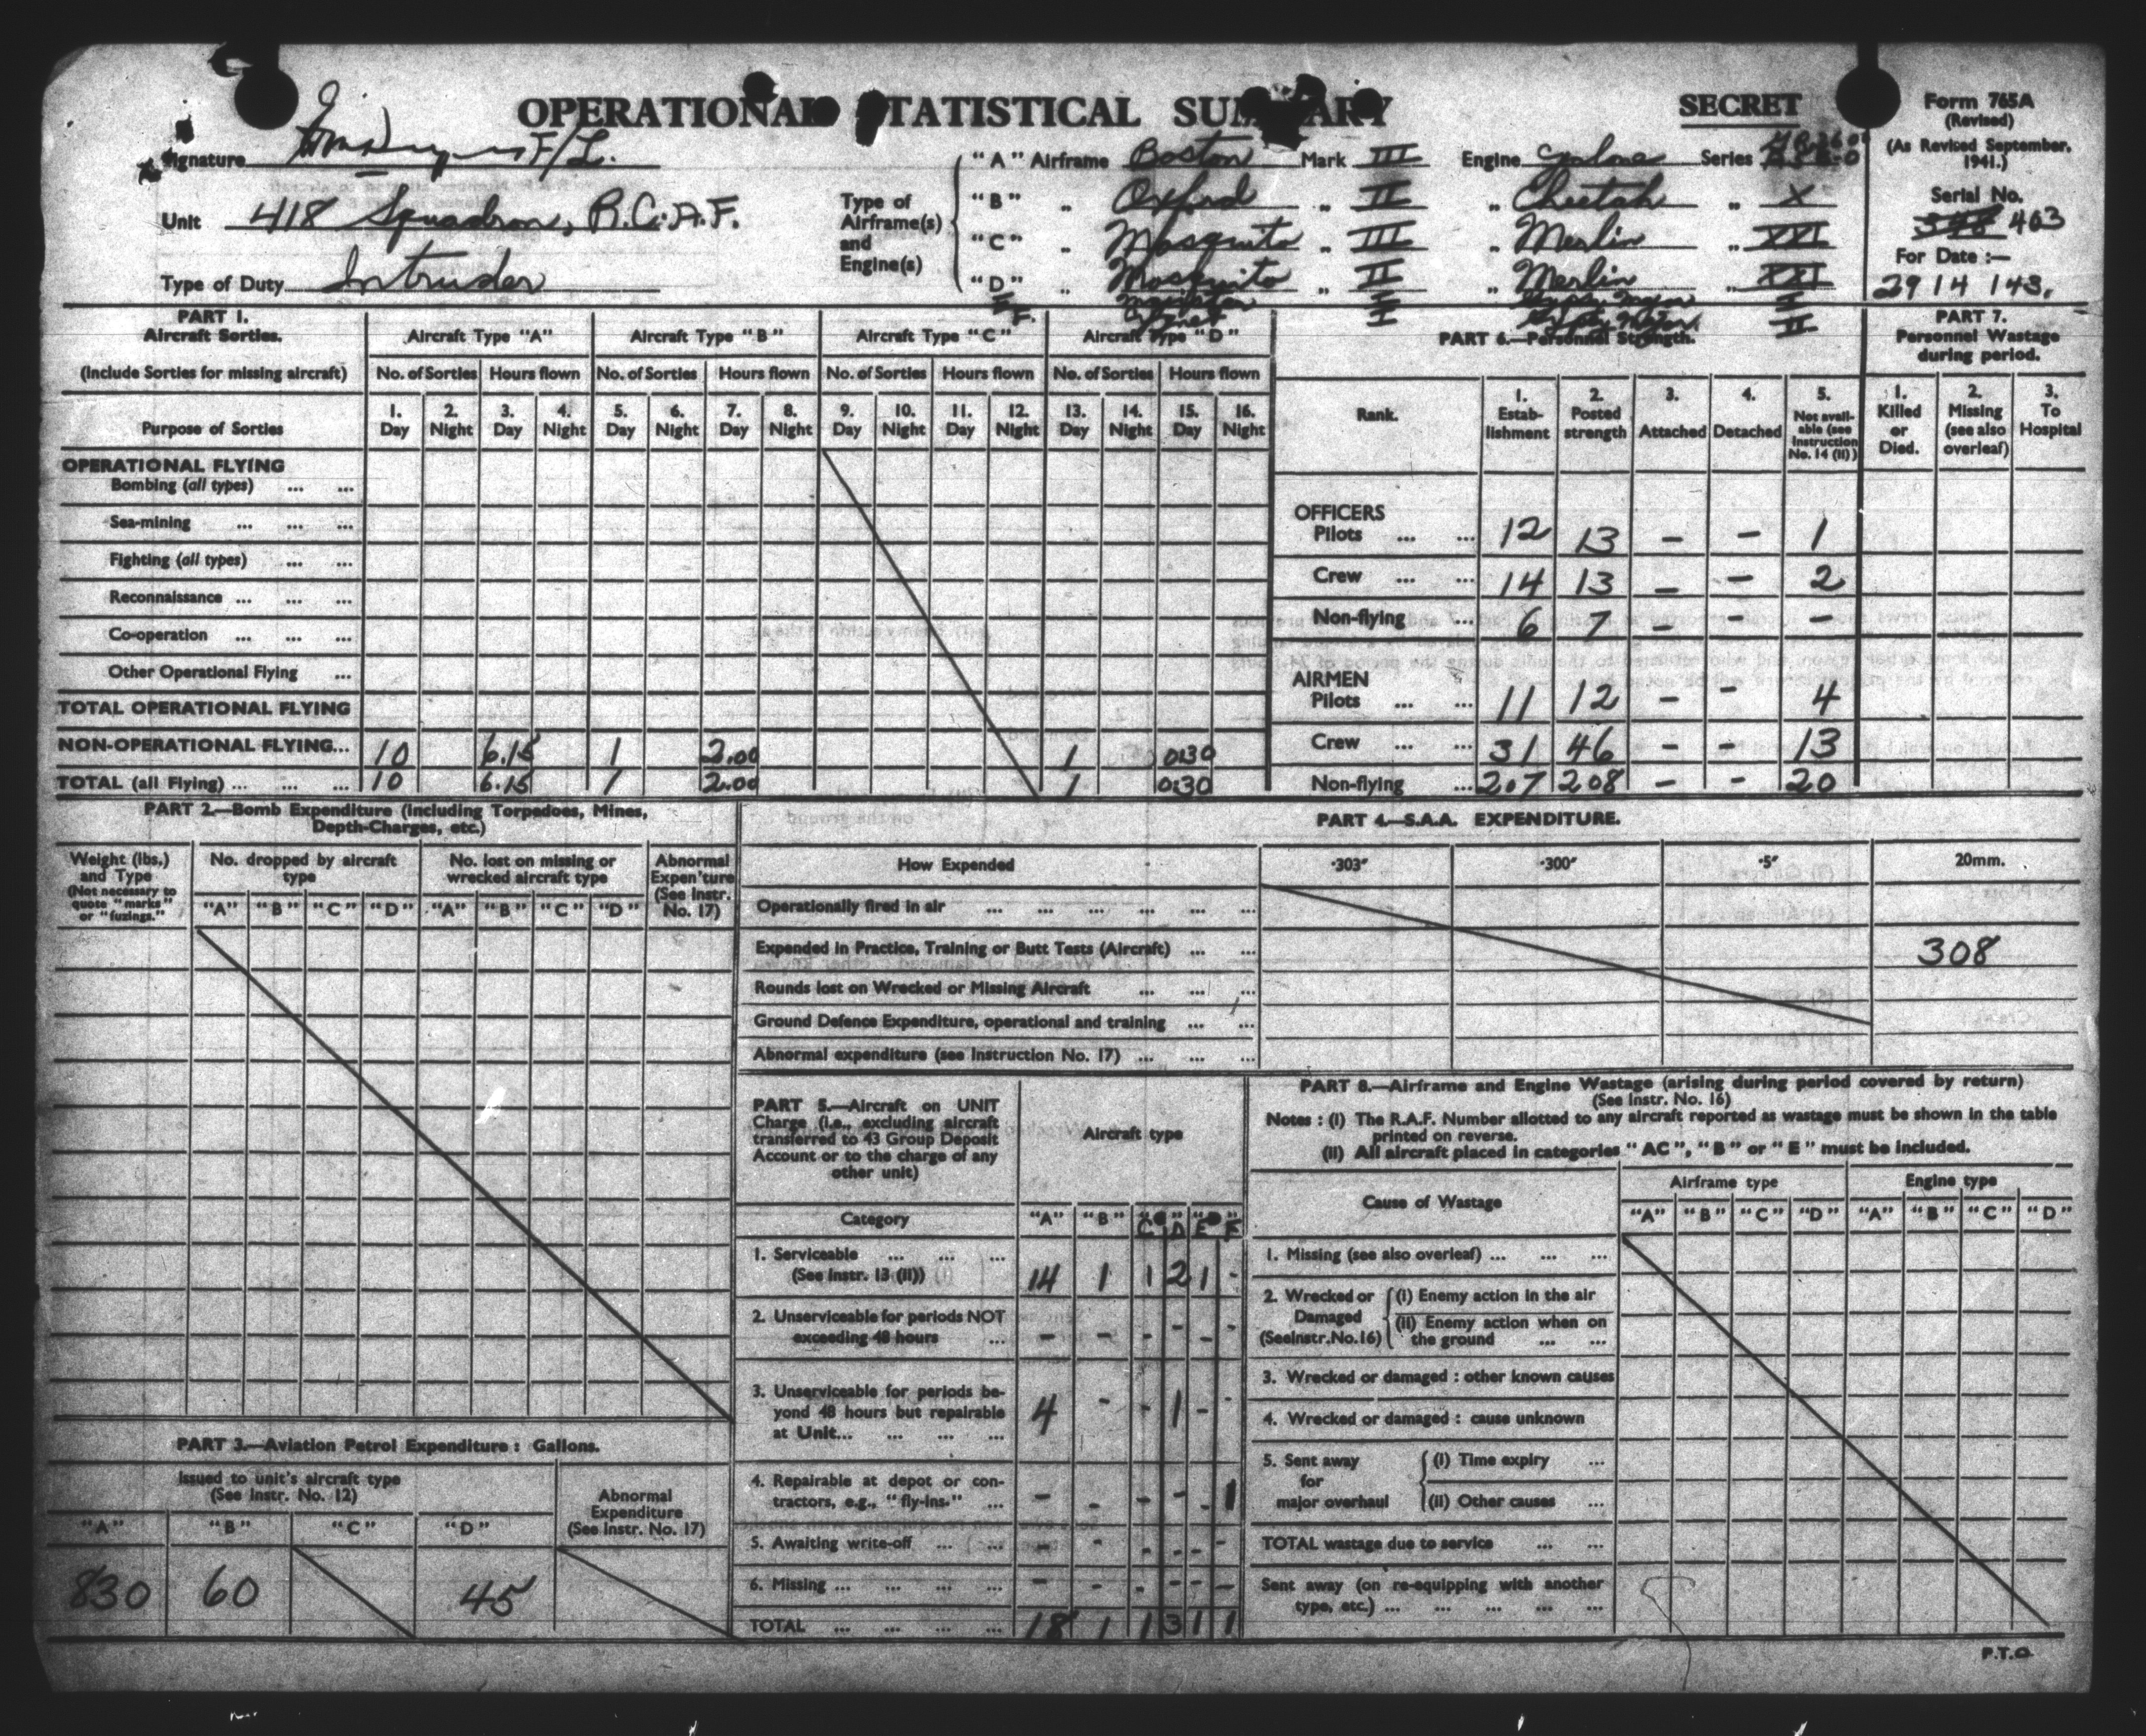 OPERATIONAL STATISTICAL SUMMARY
SECRET
Form 765A
(Revised)
(As Revised September, 1941.)
Serial No.
403
For Date :—
29 / 4 / 43.
Signature F/L.
Unit 418 Squadron, R.C.A.F.
Type of Duty Intruder
Type of Airframe(s) and Engine(s)
"A" Airframe Boston Mark III Engine Cyclone Series
"B" „ Oxford „ II „ Cheetah „ X
"C" „ Mosquito „ III „ Merlin „ XXI
"D" „ Mosquito „ II „ Merlin „ XXI
E Magister I Gypsy Major I
F. I Gypsy Major II
PART 1.
Aircraft Sorties.
(Include Sorties for missing aircraft)
Aircraft Type "A" Aircraft Type "B" Aircraft Type "C" Aircraft Type "D"
No. of Sorties Hours flown No. of Sorties Hours flown No. of Sorties Hours flown No. of Sorties Hours flown
Purpose of Sorties
1. Day 2. Night 3. Day 4. Night 5. Day 6. Night 7. Day 8. Night 9. Day 10. Night 11. Day 12. Night 13. Day 14. Night 15. Day 16. Night
OPERATIONAL FLYING
Bombing (all types) ... ...
Sea-mining ... ... ...
Fighting (all types) ... ...
Reconnaissance ... ... ...
Co-operation ... ... ...
Other Operational Flying ...
TOTAL OPERATIONAL FLYING
NON-OPERATIONAL FLYING... 10 6.15 1 2.00 1 0:30
TOTAL (all Flying) ... ... ... 10 6.15 1 2.00 1 0:30
PART 6.—Personnel Strength.
Rank.
1. Estab-lishment
2. Posted strength
3. Attached
4. Detached
5. Not avail-able (see Instruction No. 14 (II))
OFFICERS
Pilots ... ... 12 13 – – 1
Crew ... ... 14 13 – – 2
Non-flying ... 6 7 – – –
AIRMEN
Pilots ... ... 11 12 – – 4
Crew ... ... 31 46 – – 13
Non-flying ... 207 208 – – 20
PART 7.
Personnel Wastage during period.
1. Killed or Died.
2. Missing (see also overleaf)
3. To Hospital
PART 2.—Bomb Expenditure (Including Torpedoes, Mines, Depth-Charges, etc.)
Weight (lbs.) and Type (Not necessary to quote "marks" or "fuzings.")
No. dropped by aircraft type
No. lost on missing or wrecked aircraft type
Abnormal Expen'ture (See Instr. No. 17)
"A" "B" "C" "D" "A" "B" "C" "D"
PART 4.—S.A.A. EXPENDITURE.
How Expended ·303" ·300" ·5" 20mm.
Operationally fired in air ... ... ... ... ... ...
Expended in Practice, Training or Butt Tests (Aircraft) ... ... 308
Rounds lost on Wrecked or Missing Aircraft ... ... ...
Ground Defence Expenditure, operational and training ... ...
Abnormal expenditure (see Instruction No. 17) ... ... ...
PART 3.—Aviation Petrol Expenditure : Gallons.
Issued to unit's aircraft type
(See Instr. No. 12)
Abnormal Expenditure (See Instr. No. 17)
"A" "B" "C" "D"
830 60 45
PART 5.—Aircraft on UNIT Charge (i.e., excluding aircraft transferred to 43 Group Deposit Account or to the charge of any other unit)
Aircraft type
Category "A" "B" C D E F
1. Serviceable ... ... ...
(See Instr. 13 (II)) 14 1 1 2 1 -
2. Unserviceable for periods NOT exceeding 48 hours ... – – - - – -
3. Unserviceable for periods be-yond 48 hours but repairable at Unit... ... ... ... 4 - - 1 - -
4. Repairable at depot or con-tractors, e.g., "fly-ins." ... – - - - - 1
5. Awaiting write-off ... ... – - - - - -
6. Missing ... ... ... ... – - - - - –
TOTAL ... ... ... ... 18 1 1 3 1 1
PART 8.—Airframe and Engine Wastage (arising during period covered by return)
(See Instr. No. 16)
Notes : (I) The R.A.F. Number allotted to any aircraft reported as wastage must be shown in the table printed on reverse.
(II) All aircraft placed in categories "AC", "B" or "E" must be included.
Cause of Wastage Airframe type Engine type
"A" "B" "C" "D" "A" "B" "C" "D"
1. Missing (see also overleaf) ... ... ...
2. Wrecked or Damaged (SeeInstr.No.16)
(I) Enemy action in the air
(II) Enemy action when on the ground ... ...
3. Wrecked or damaged : other known causes
4. Wrecked or damaged : cause unknown
5. Sent away for major overhaul
(I) Time expiry ...
(II) Other causes ...
TOTAL wastage due to service ... ...
Sent away (on re-equipping with another type, etc.) ... ... ... ... ...
P.T.O.